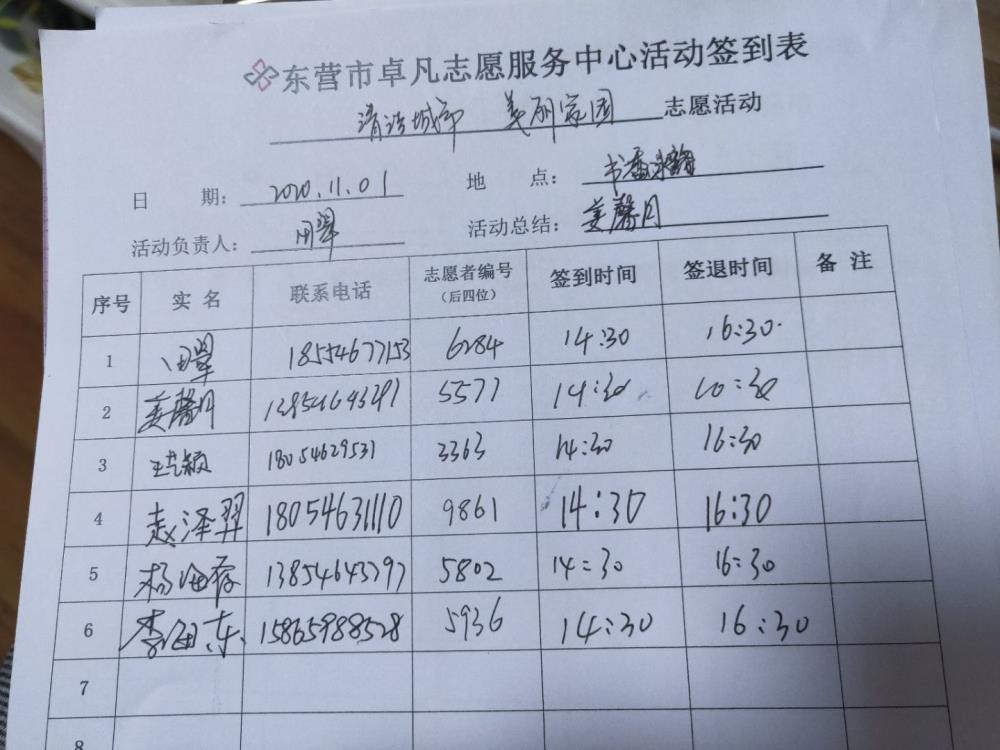 东营市卓凡志愿服务中心活动签到表
清洁城市 美丽家园 志愿活动
日 期: 2020.11.01 地 点: 书香
活动负责人: 田翠 活动总结: 姜馨月
序号 实名 联系电话 志愿者编号(后四位) 签到时间 签退时间 备注
1 田翠 18554677153 6284 14:30 16:30
2 姜馨月 5577 14:30 10:30
3 18054629531 3363 14:30 16:30
4 赵泽羿 18054631110 9861 14:30 16:30
5 杨海蓉 13854643797 5802 14:30 16:30
6 李海东 15865988528 5936 14:30 16:30
7
8